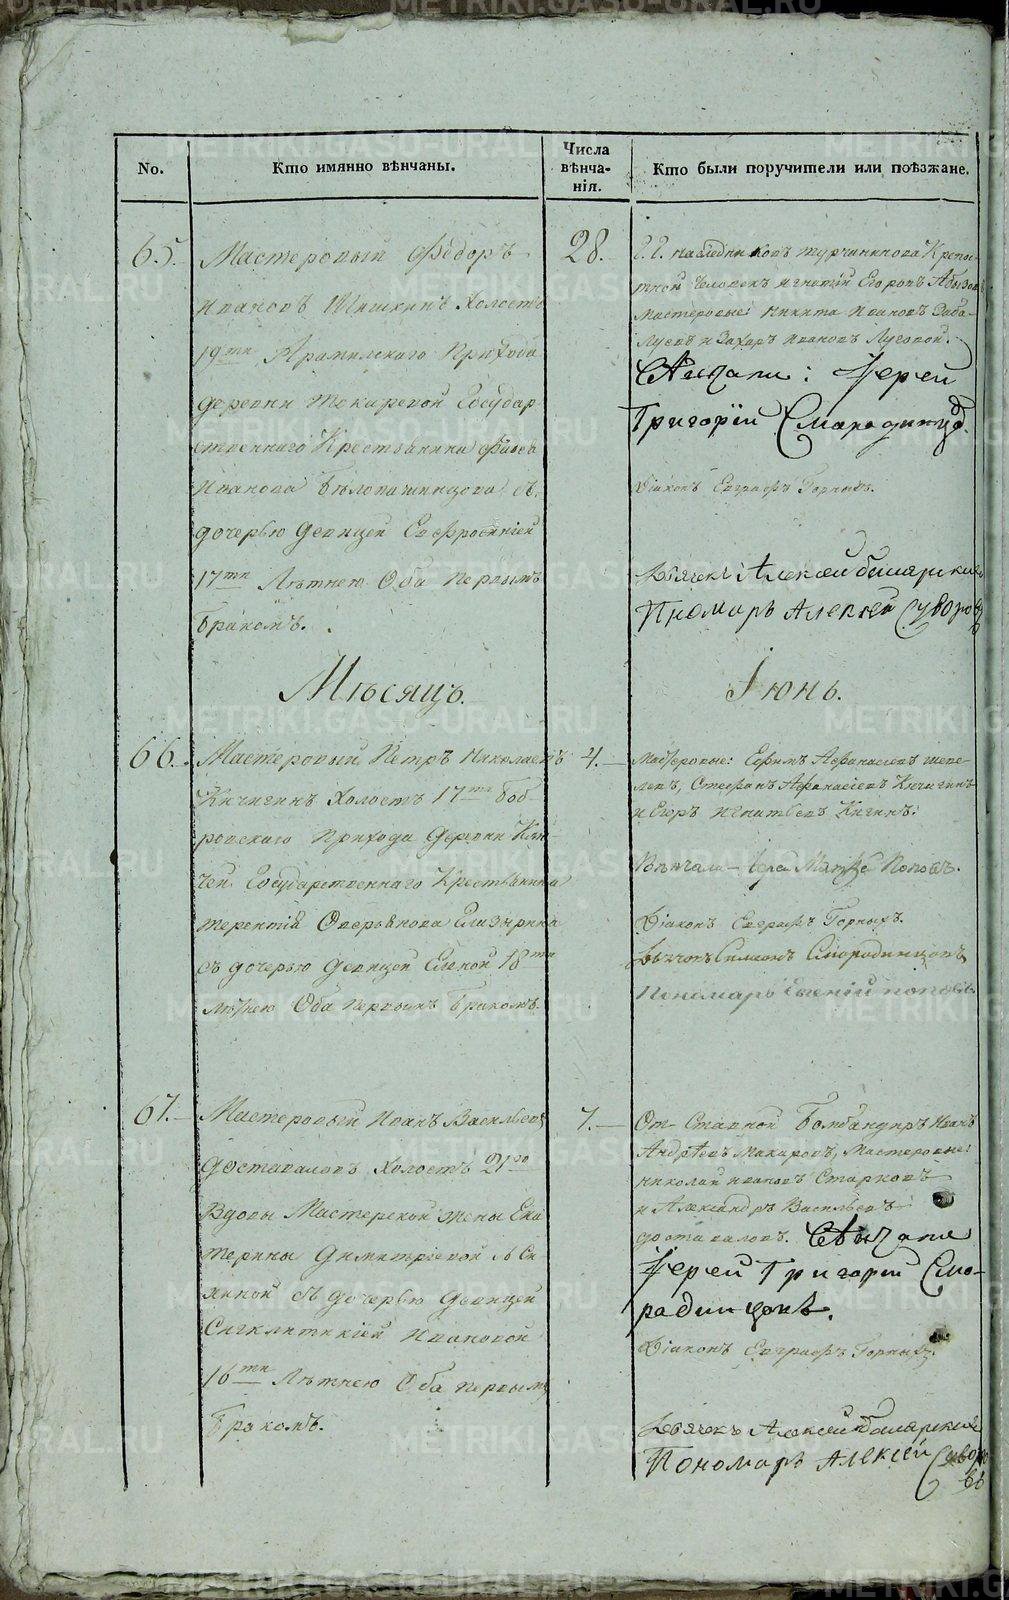 No.
Кто имянно вѣнчаны.
Числа
вѣнча-
нія.
Кто были поручители или поѣзжане.
65.
Мастеровый Ѳедоръ
Ивановъ Шишкинъ Холостъ
19ти Арамилскаго Прихода
деревни Токаревой Государ
ственнаго Крестьянина
Иванова Бѣлопашинцова съ
дочерью девицей Евфросиніей
17ти Лѣтнею Оба первымъ
Бракомъ.
28.
Г. Г. наследниковъ Турчанинова Крепо-
стной Человекъ Игнатій Егоровъ
Мастеровые: Никита Ивановъ
и Захаръ Ивановъ Луговой.
Свенчали: Іерей
Григорій Смародинцо.
Діаконъ Евграфъ Горныхъ.
Дьячекъ Алексей
Пномарь Алексей Суворовъ
Мѣсяцъ.
Іюнь.
66.
Мастеровый Петръ Николаевъ
Кичигинъ Холостъ 17ти Боб-
ровскаго Прихода Деревни Клю
чей Государственнаго Крестьянина
Терентія Оверьянова
съ дочерью девицей Еленой 18ти
лѣтнею Оба первымъ Бракомъ.
4.
Мастеровые: Ефимъ Афанасіевъ Шепе-
левъ, Стефанъ Афанасіевъ Кичигинъ
и Егоръ Игнатьевъ Кигинъ.
Венчали Поповъ.
Діаконъ Евграфъ Горныхъ.
Симеонъ Смородинцовъ
Пономарь Евгеній Поповъ
67.
Мастеровый Иванъ Васильевъ
Доставаловъ Холостъ 21го
Вдовы Мастерской жены Ека
терины Димитріевой
съ дочерью девицей
Сигклитикіей Ивановой
16ти Лѣтнею Оба первымъ
Бракомъ.
7.
От-Ставной Бомбандиръ Иванъ
Андрѣевъ Макаровъ, Мастеровые:
Николай Ивановъ Старковъ
и Александръ Васильевъ
Доставаловъ. Свенчале
Іерей Григорій Смо-
радинцовъ.
Діаконъ Евграфъ Горныхъ.
Дьячекъ Алексей
Пономарь Алексей Суворо
въ